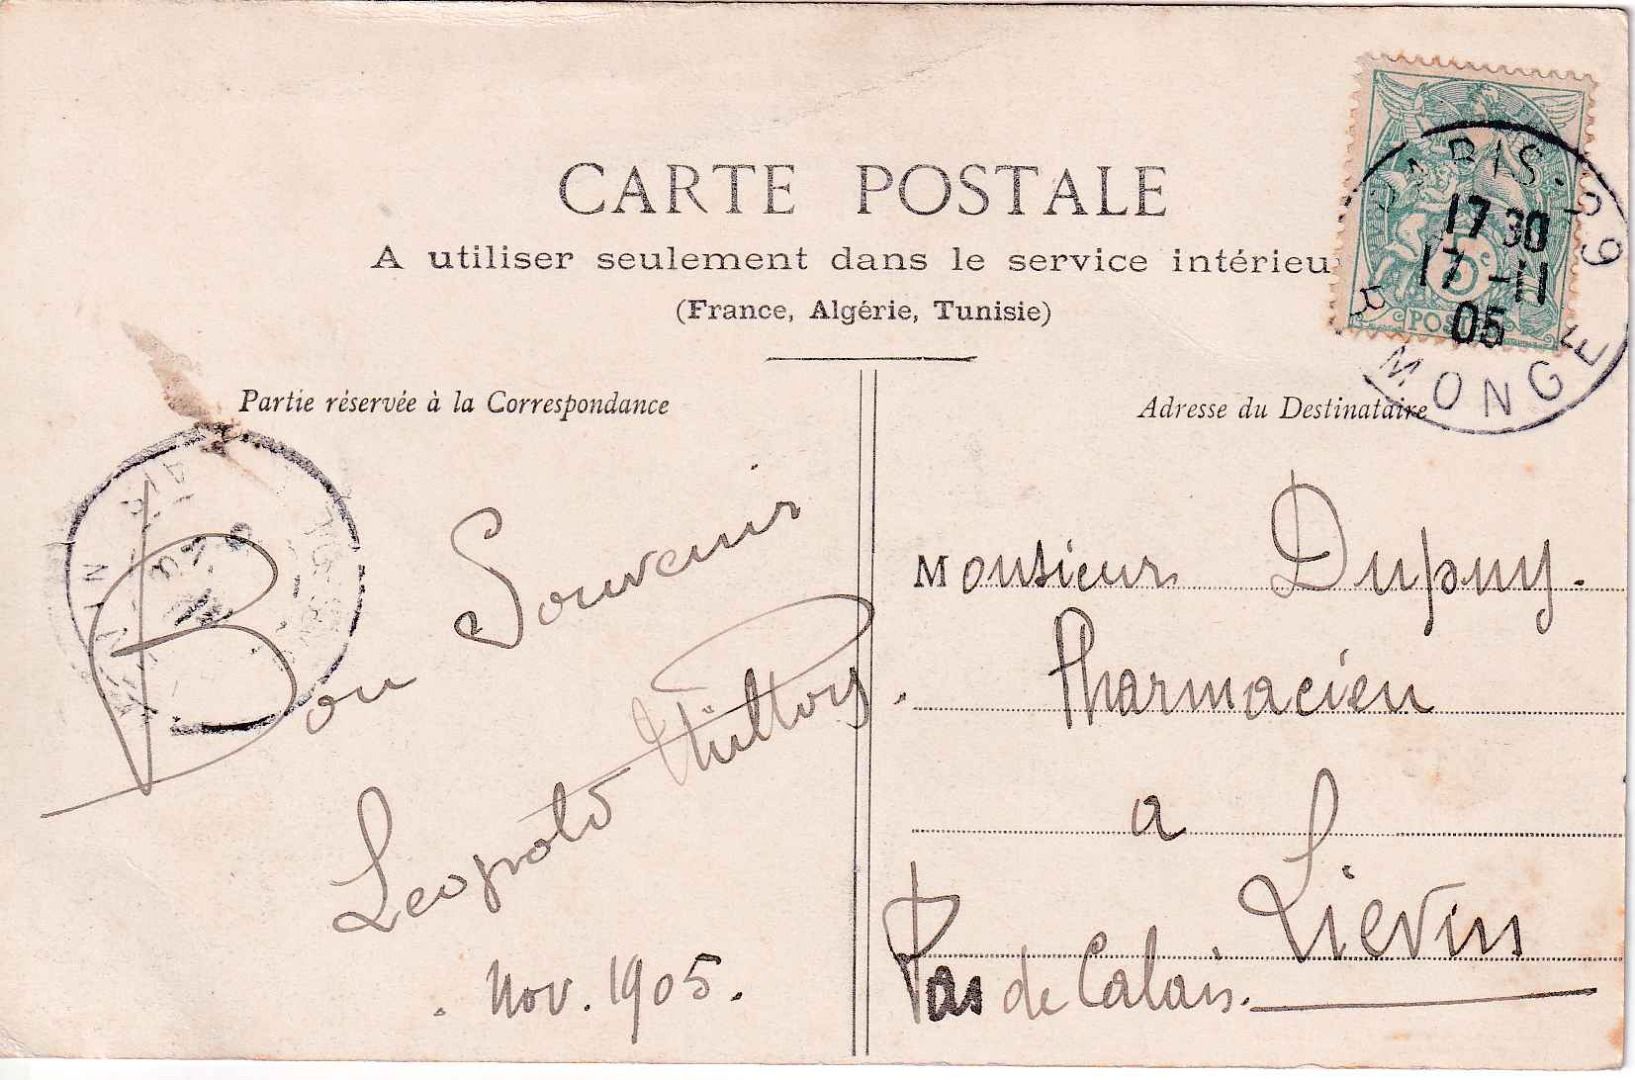 CARTE POSTALE
A utiliser seulement dans le service intérieu
(France, Algérie, Tunisie)
Partie réservée à la Correspondance
Adresse du Destinataire
PARIS. 29
17 30
17 - 11
05
R MONGE
5c
POS
Bon Souvenir
Leopold
. Nov. 1905.
Monsieur Dupuy.
Pharmacien
a
Lievin
Pas de Calais.